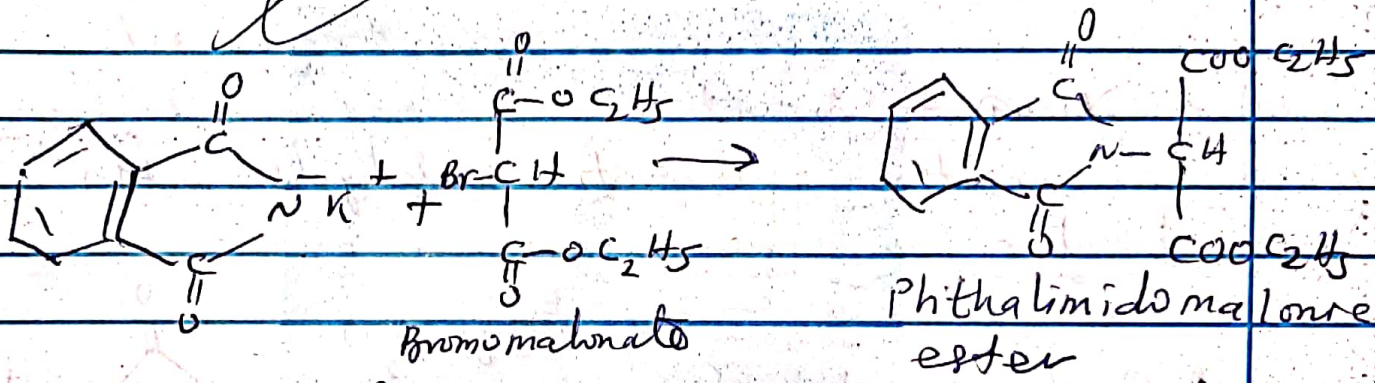 O
O
C
N⁻ K⁺
C
O
+
O
C-O C₂H₅
Br-CH
C-O C₂H₅
O
Bromomalonate
→
O
C
N-
C
O
COO C₂H₅
CH
COO C₂H₅
Phthalimidomalonic
ester